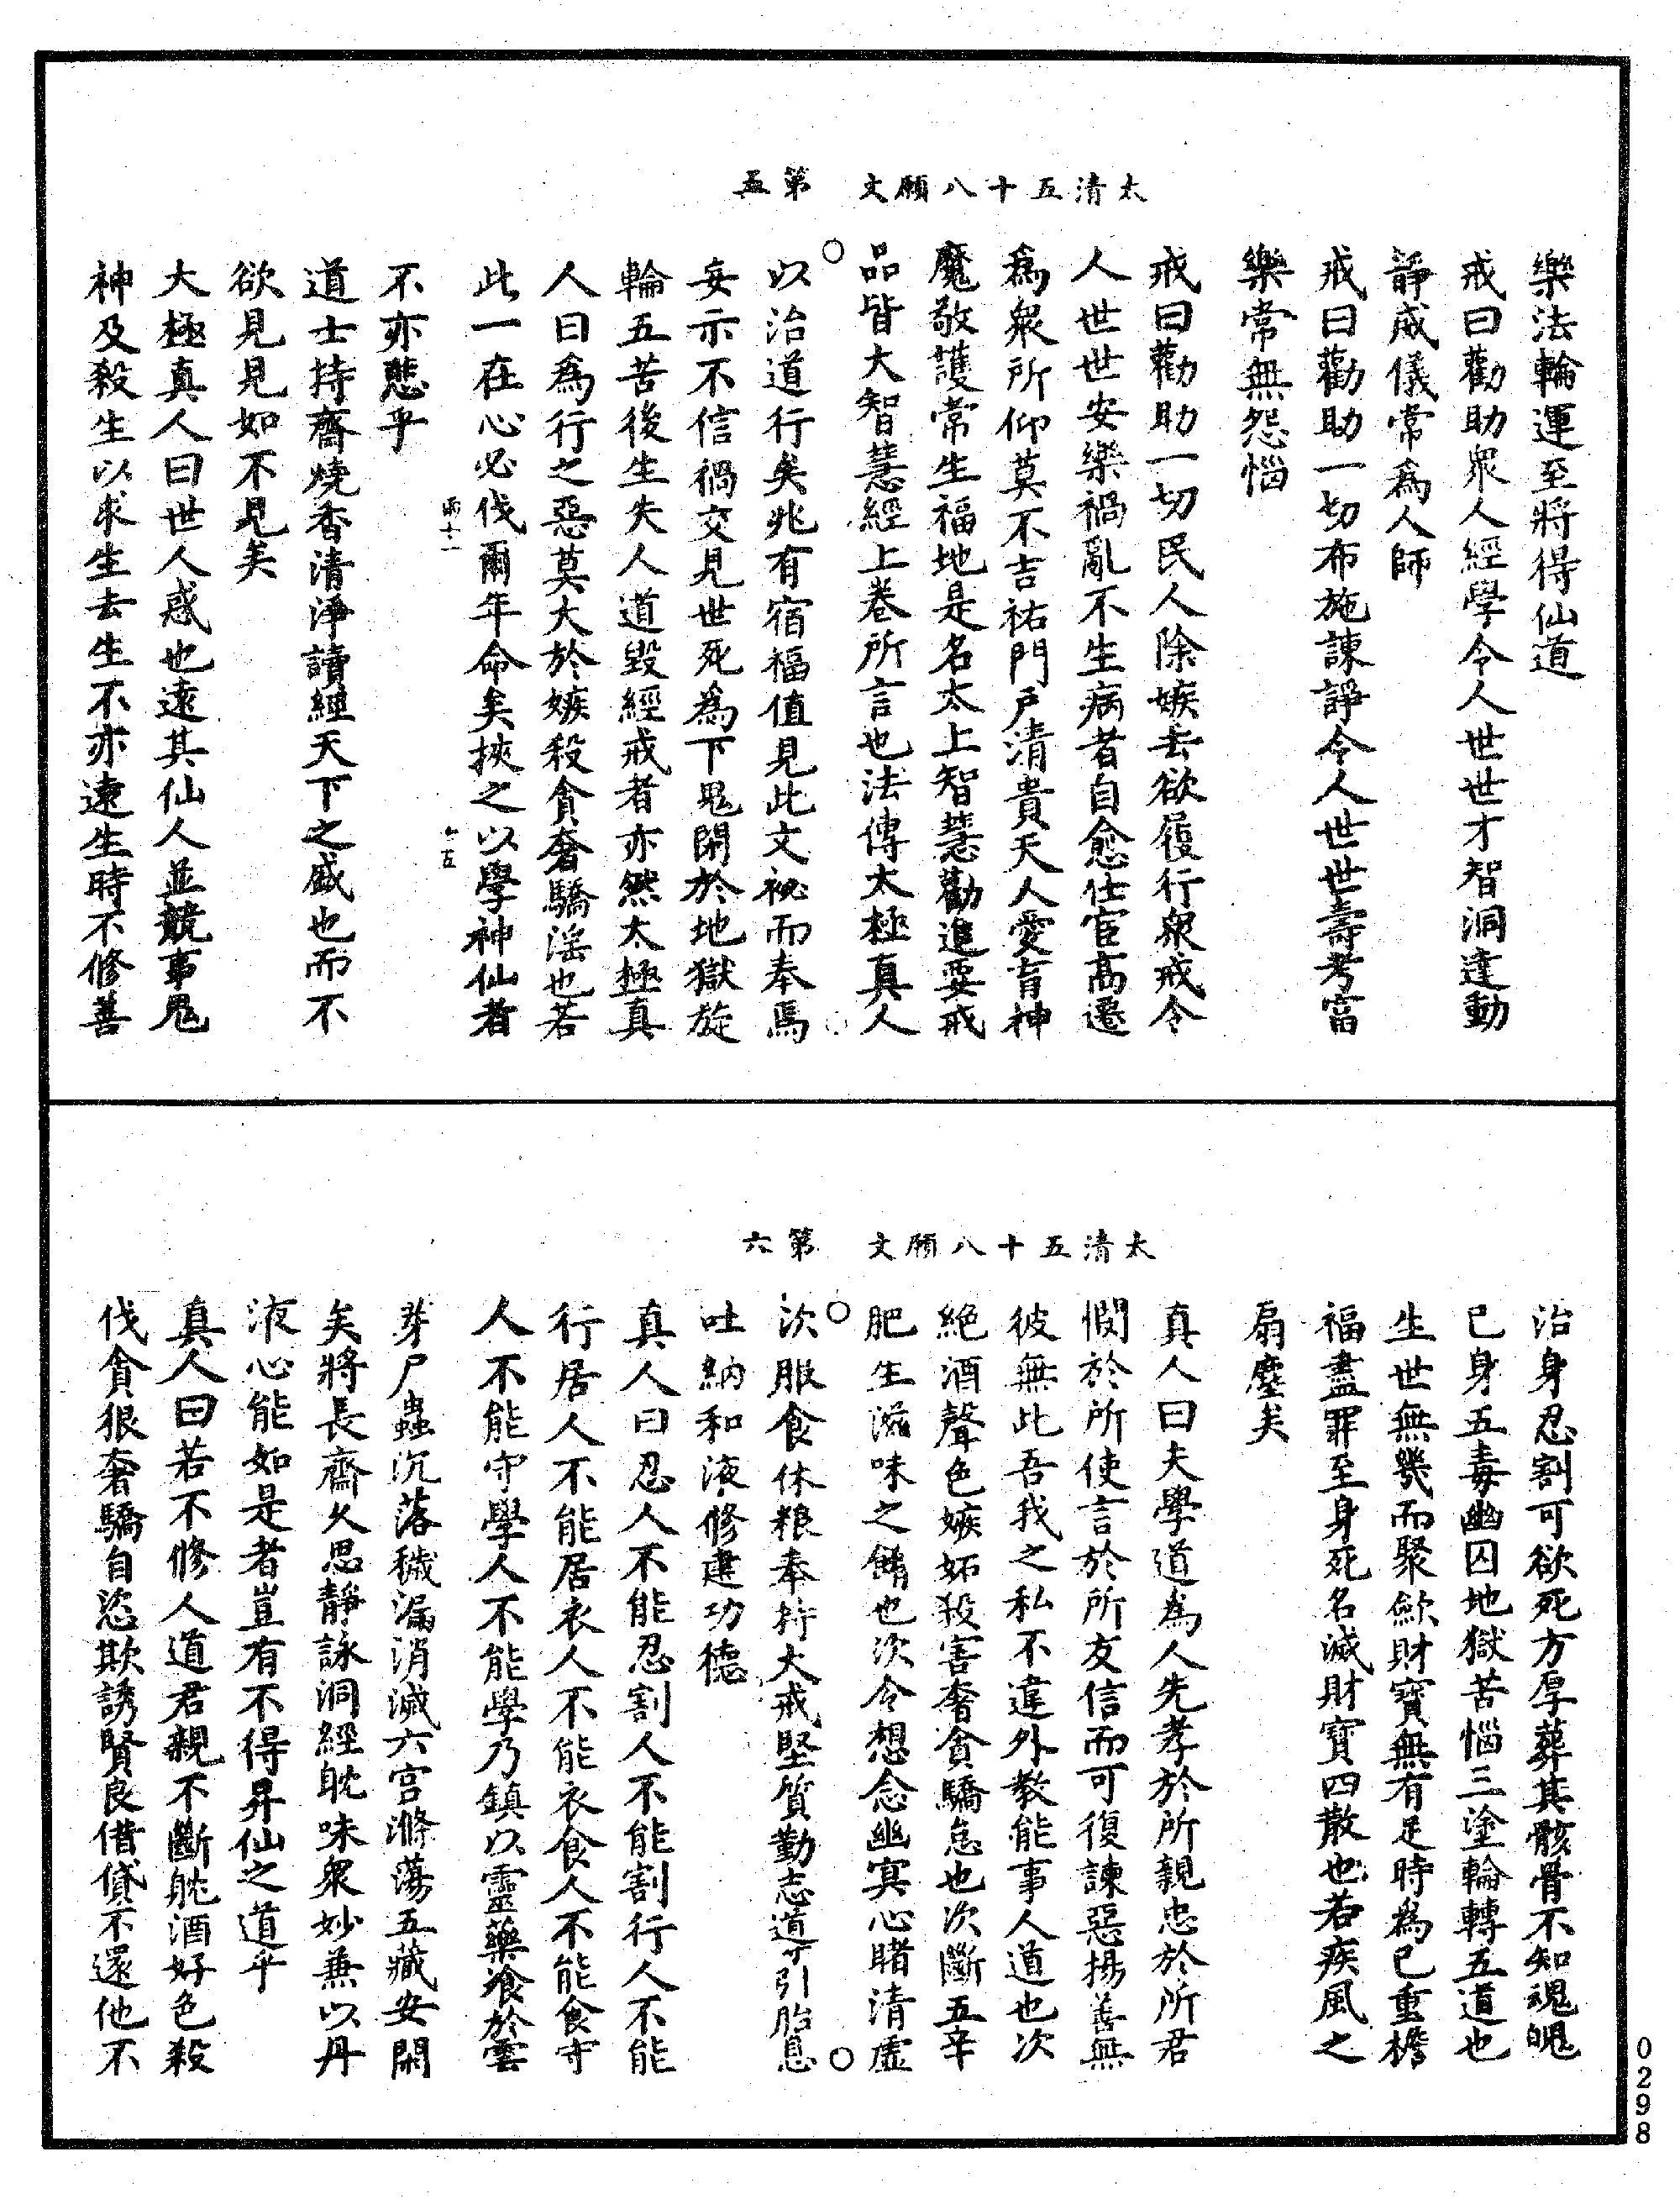 太清五十八願文　第五
樂法輪運至將得仙道
戒曰勸助衆人經學令人世世才智洞達動
靜威儀常為人師
戒曰勸助一切布施諫諍令人世世壽考富
樂常無怨惱
戒曰勸助一切民人除嫉去欲履行衆戒令
人世世安樂禍亂不生病者自愈仕宦高遷
為衆所仰莫不吉祐門戶清貴天人愛育神
魔敬護常生福地是名太上智慧勸進要戒
品皆大智慧經上卷所言也法傳太極真人
以治道行矣兆有宿福值見此文祕而奉焉
妄示不信禍交見世死為下鬼閉於地獄旋
輪五苦後生失人道毀經戒者亦然太極真
人曰為行之惡莫大於嫉殺貪奢驕淫也若
此一在心必伐爾年命矣挾之以學神仙者
不亦悲乎
道士持齋燒香清淨讀經天下之盛也而不
欲見見如不見矣
大極真人曰世人惑也遠其仙人並競事鬼
神及殺生以求生去生不亦遠生時不修善
太清五十八願文　第六
治身忍割可欲死方厚葬其骸骨不知魂魄
已身五毒幽囚地獄苦惱三塗輪轉五道也
生世無幾而聚斂財寶無有足時為已重擔
福盡罪至身死名滅財寶四散也若疾風之
扇塵矣
真人曰夫學道為人先孝於所親忠於所君
憫於所使言於所友信而可復諫惡揚善無
彼無此吾我之私不違外教能事人道也次
絕酒聲色嫉妬殺害奢貪驕怠也次斷五辛
肥生滋味之餚也次令想念幽冥心睹清虛
次服食休粮奉持大戒堅質勤志導引胎息
吐納和液修建功德
真人曰忍人不能忍割人不能割行人不能
行居人不能居衣人不能衣食人不能食守
人不能守學人不能學乃鎮以靈藥飡於雲
芽尸蟲沉落穢漏消滅六宮滌蕩五藏安閑
矣將長齋久思靜詠洞經耽味衆妙兼以丹
液心能如是者豈有不得昇仙之道乎
真人曰若不修人道君親不斷耽酒好色殺
伐貪狠奢驕自恣欺誘賢良借貸不還他不
0298